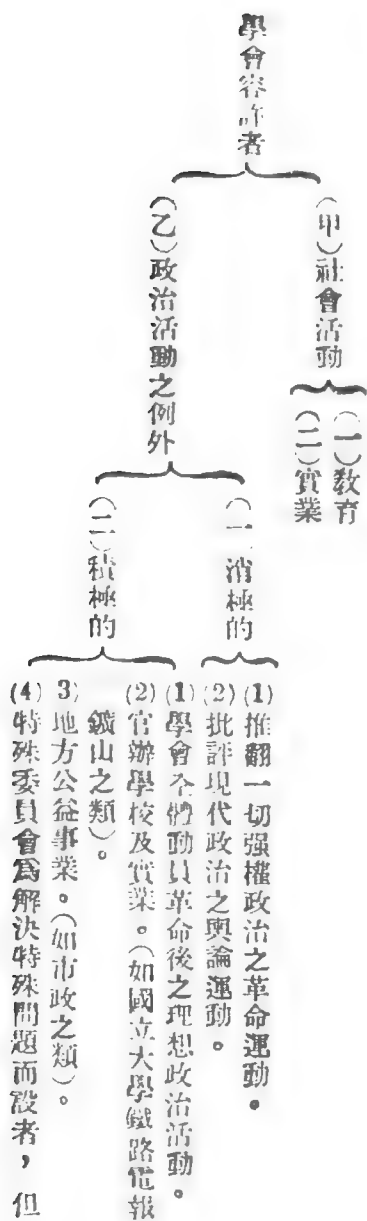 學會容許者
(甲)社會活動
(一)敎育
(二)實業
(乙)政治活動之例外
(一 消極的
(1)推翻一切强權政治之革命運動。
(2)批評現代政治之輿論運動。
(二)積極的
(1)學會全體動員革命後之理想政治活動。
(2)官辦學校及實業。(如國立大學鐵路電報
鑛山之類)。
3)地方公益事業。(如市政之類)。
(4)特殊委員會爲解決特殊問題而設者,但